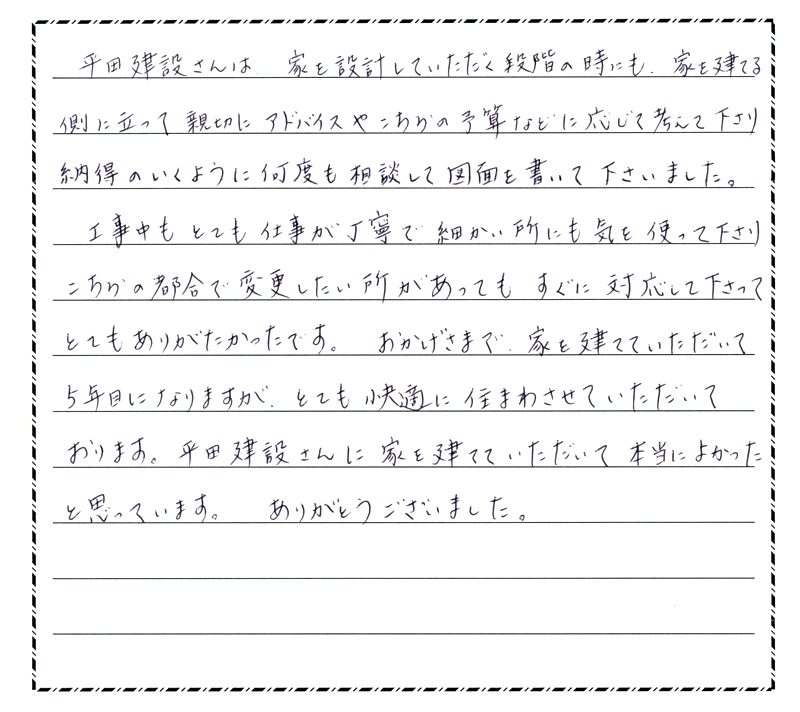 平田建設さんは、家を設計していただく段階の時にも、家を建てる
側に立って親切にアドバイスやこちらの予算などに応じて考えて下さり
納得のいくように何度も相談して図面を書いて下さいました。
工事中もとても仕事が丁寧で細かい所にも気を使って下さり
こちらの都合で変更したい所があってもすぐに対応して下さって
とてもありがたかったです。 おかげさまで、家を建てていただいて
5年目になりますが、とても快適に住まわさせていただいて
おります。平田建設さんに家を建てていただいて本当によかった
と思っています。 ありがとうございました。